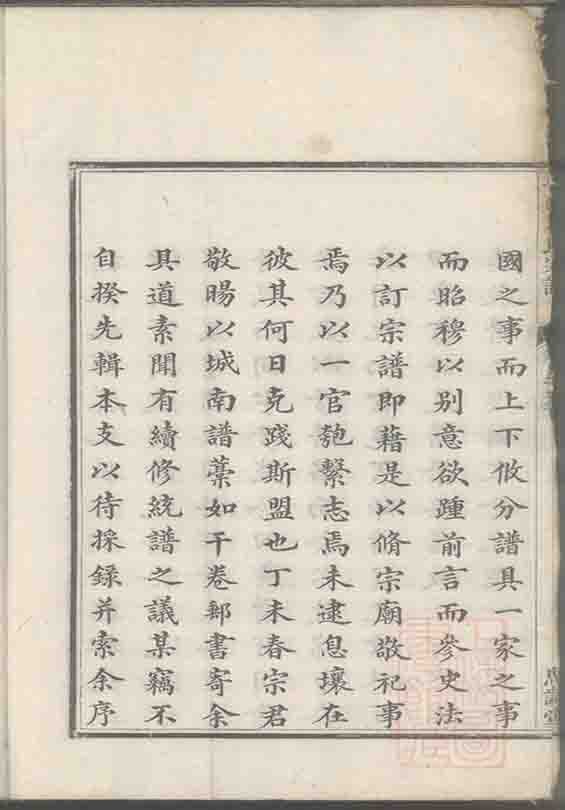 國之事而上下攸分譜具一家之事
而昭穆以別意欲踵前言而參史法
以訂宗譜即藉是以脩宗廟敬祀事
焉乃以一官匏繫志焉未逮息壤在
彼其何日克踐斯盟也丁未春宗君
敬暘以城南譜藁如干卷郵書寄余
具道素聞有續修統譜之議某竊不
自揆先輯本支以待採録并索余序